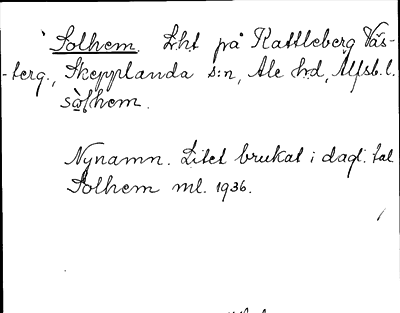 `Solhem. Lht på Kattleberg Väs-
-terg., Skepplanda s:n, Ale hd, Älfsb. l.
sòlhem.
Nynamn. Litet brukat i dagl. tal
Solhem ml. 1936.